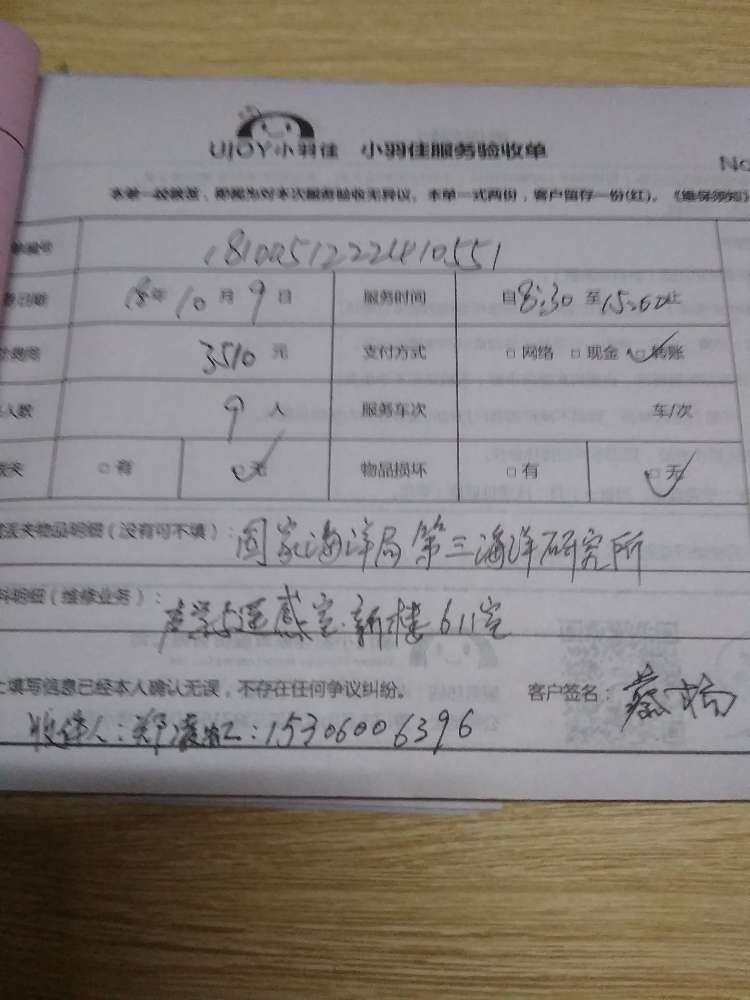 UJOY小羽佳 小羽佳服务验收单
No
本单一经签署，即视为对本次服务验收无异议。本单一式两份，客户留存一份(红)。《售保须知》
编号 1810051222410551
日期 18年10月9日 服务时间 自8:30至15:00止
费用 3510元 支付方式 □网络 □现金 ☑转账
人数 9人 服务车次 车/次
丢失 □有 ☑无 物品损坏 □有 ☑无
丢失物品明细（没有可不填）：国家海洋局第三海洋研究所
料明细（维修业务）：声学与遥感室.新楼611室
上填写信息已经本人确认无误，不存在任何争议纠纷。 客户签名：蔡杨
收件人：郑凌虹：15306006396